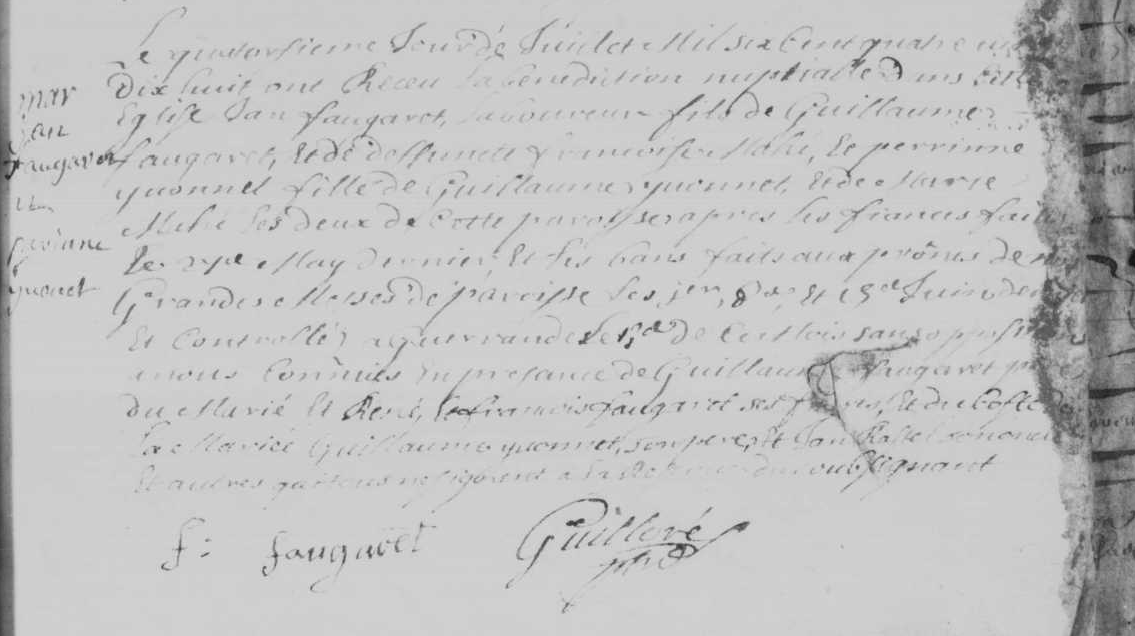 mar
Jan
faugaret
perinne
yuonet
Le quatorsieme Jour de Juillet Mil six Cent quatre
Dix huit ont Receu La benediction nuptialle Dans Cette
Eglise Jan faugaret, Laboureur fils de Guillaume
faugaret, Et de deffuncte francoise Mahé, Et perrinne
yuonnet fille de Guillaume yuonnet, Et de Marie
Mahé Les deux de Cette paroisse apres Les fiances faites
Le May Dernier, Et Les bans faits aux prônes de nos
Grandes Messes de paroisse Les jer, 8e, Et 15e Juin
Et Controllés a Guerrande Le de Ce Mois sans opposition
a nous Connües En presance de Guillaume faugaret pere
du Marié Et René, Et francois faugaret ses freres, Et du Costé de
La Mariée Guillaume yuonnet, son pere, Et Jan son oncle
Et autres qui tous ne signent a La Reserve du soubsignant
f: faugaret Guilloré